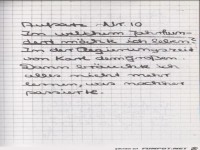 Aufsatz Nr 10
In welchem Jahrhun-
dert möchte ich leben?
In der Regierungszeit
von Karl dem großen.
Dann bräuchte ich
alles nicht mehr
lernen, was nachher
passierte.